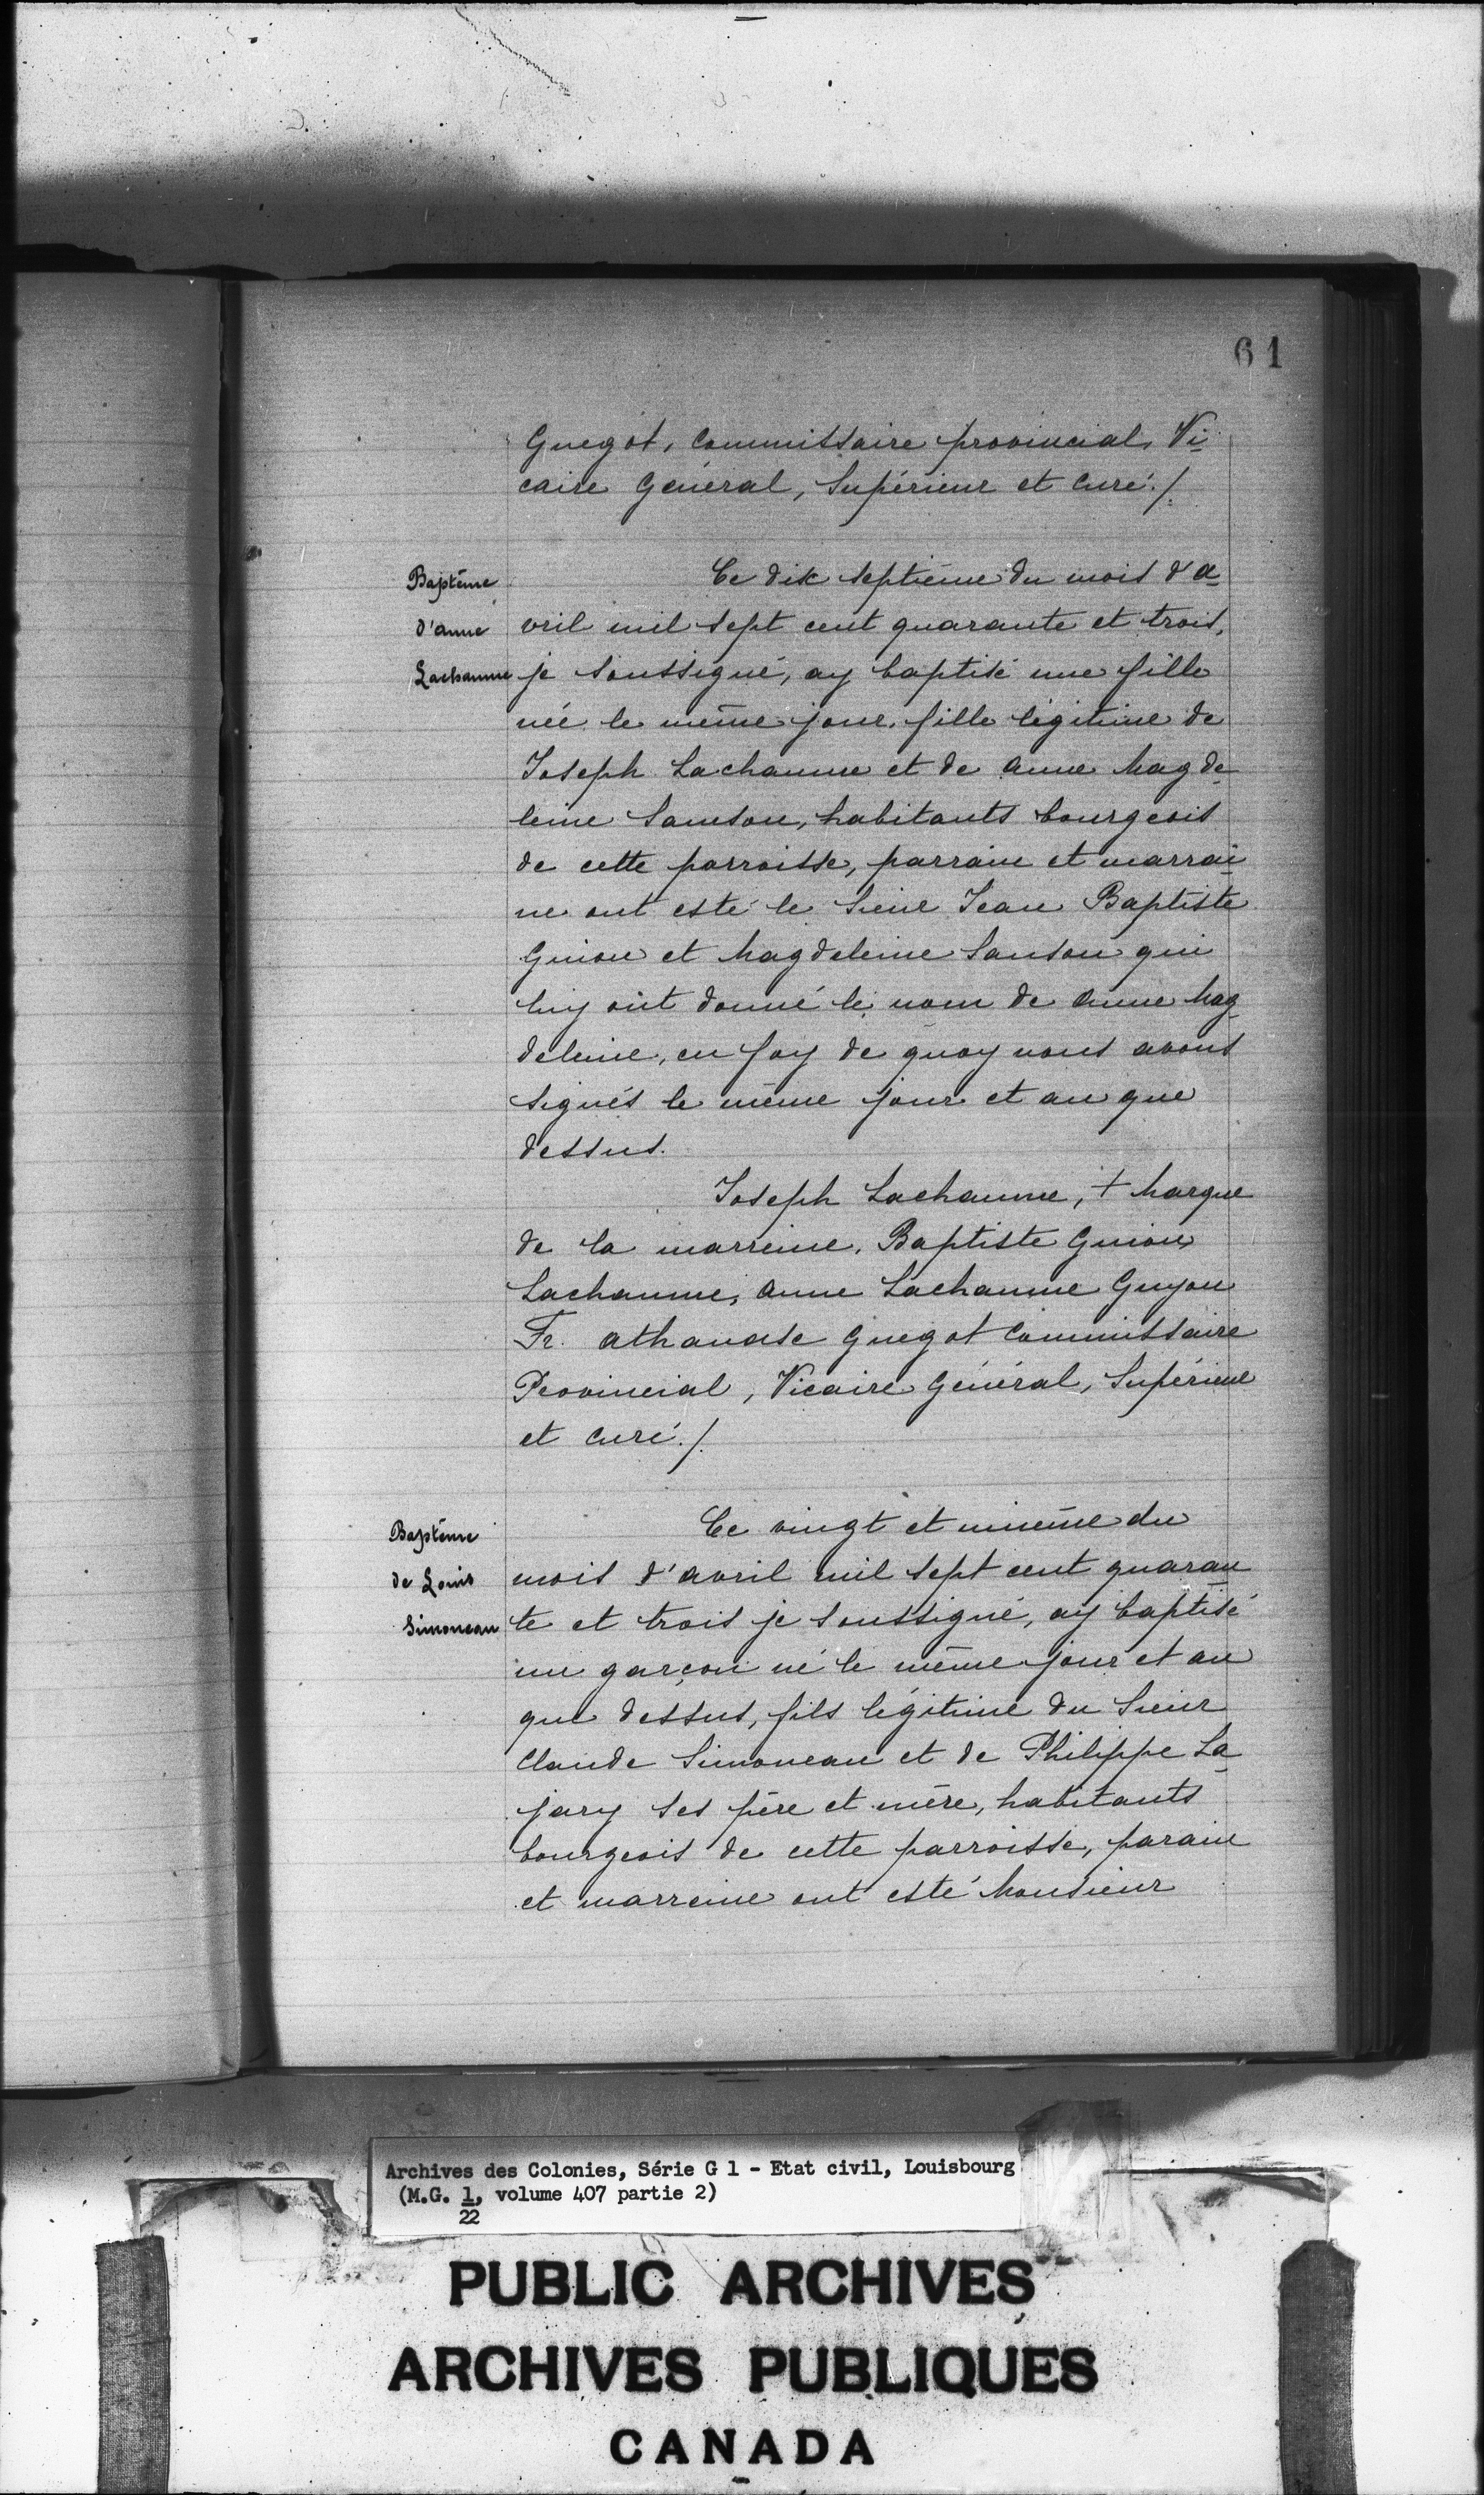 61
Guegot, Commissaire provincial, Vi
caire Général, Supérieur et Curé./.
Baptême
d'anne
Lachaume
Ce dix septième du mois d'a
vril mil sept cent quarante et trois,
je soussigné, ay baptisé une fille
née le même jour, fille légitime de
Joseph Lachaume et de Anne Magde
leine Samson, habitants bourgeois
de cette parroisse, parrain et marrai
ne ont esté le Sieur Jean Baptiste
Guion et Magdeleine Sanson qui
luy ont donné le nom de Anne Mag
deleine, en foy de quoy nous avons
signés le même jour et an que
dessus.
Joseph Lachaume, + Marque
de la marreine, Baptiste Guion,
Lachaume, Anne Lachaume Guyon
Fr. Athanase Guegot Commissaire
Provincial, Vicaire Général, Supérieur
et Curé./.
Baptême
de Louis
Simoneau
Ce vingt et unième du
mois d'avril mil sept cent quaran
te et trois je soussigné, ay baptisé
un garçon né le même jour et an
que dessus, fils légitime du Sieur
Claude Simoneau et de Philippe La
jary ses père et mère, habitants
bourgeois de cette parroisse, parain
et marreine ont esté Monsieur
Archives des Colonies, Série G 1 - Etat civil, Louisbourg
(M.G. 1, volume 407 partie 2)
22
PUBLIC ARCHIVES
ARCHIVES PUBLIQUES
CANADA